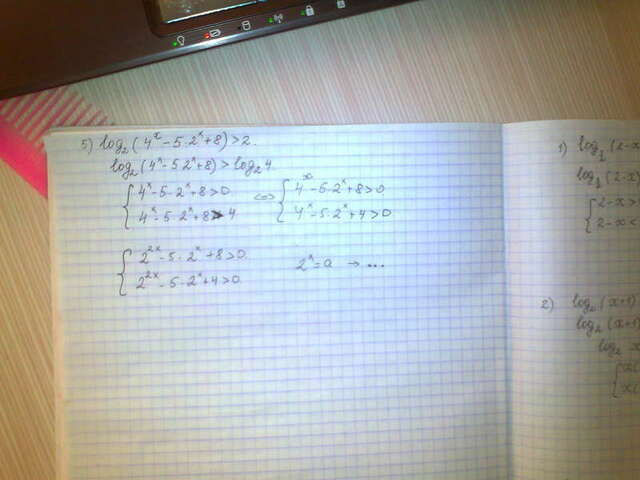 5) log₂(4ˣ-5·2ˣ+8)>2.
log₂(4ˣ-5·2ˣ+8)>log₂4
{4ˣ-5·2ˣ+8>0 <=> {4ˣ-5·2ˣ+8>0
4ˣ-5·2ˣ+8>4 4ˣ-5·2ˣ+4>0
{2²ˣ-5·2ˣ+8>0
2²ˣ-5·2ˣ+4>0. 2ˣ=a → ...
1) log₁(2-x
log₁(2-x)
{2-x>
2-x<
2) log₂(x+1)
log₂(x+1)
log₂ x